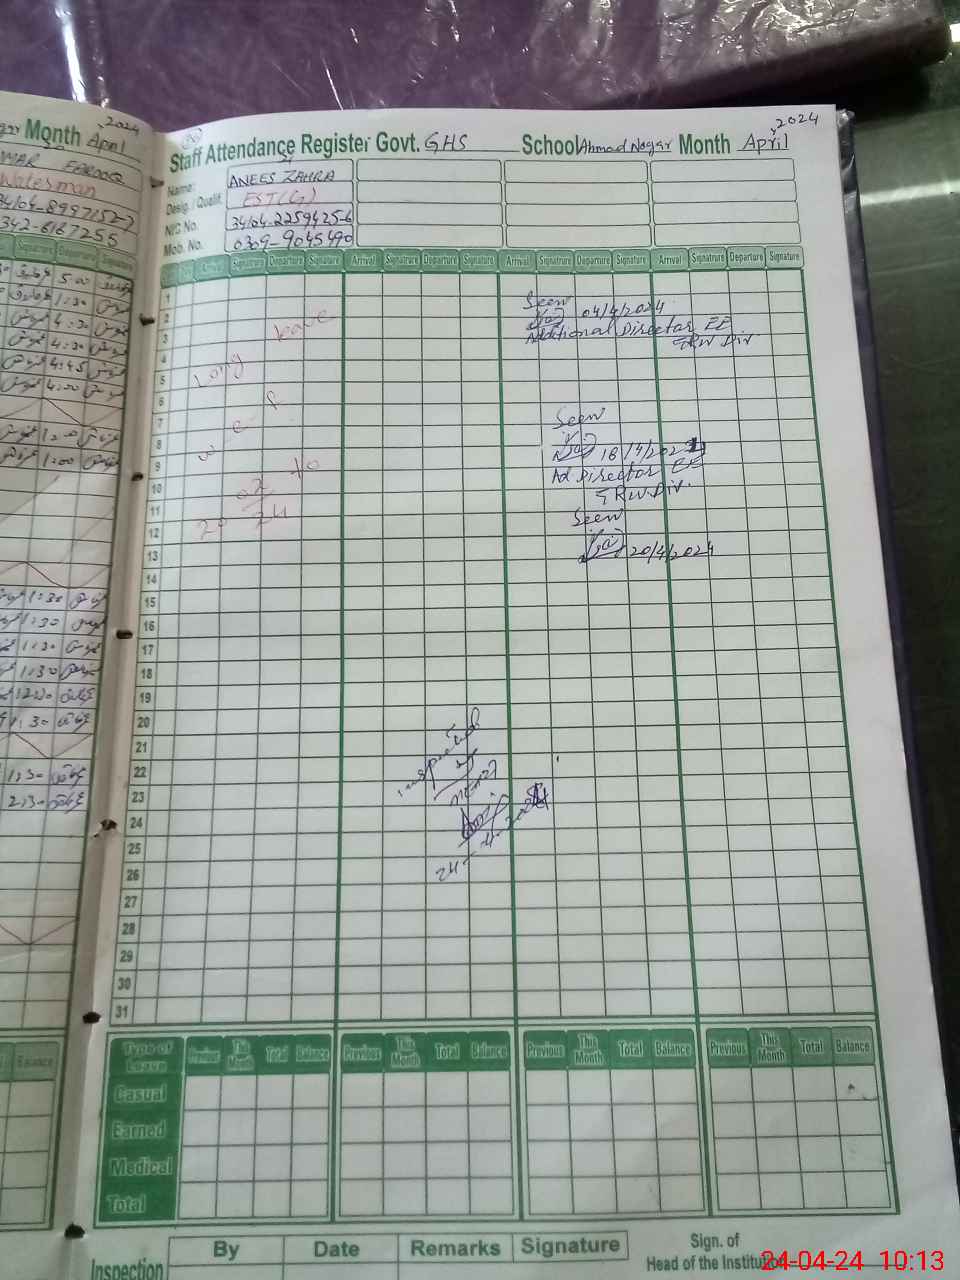 Month April 2024
FAROOQ
Waterman
Signature Departure Signature
5:00
1:30
4:30
4:30
4:45
4:00
1:00
1:00
1:30
1:30
1:30
1:30
12:00
1:30
1:30
2:30
Balance
Staff Attendance Register Govt. GHS School Ahmad Nagar Month April 2024
Name: ANEES ZAHRA
Desig. / Qualif. EST(G)
NIC No. 34104-2259425-6
Mob. No. 0309-9045490
Arrival Signatrure Departure Signature Arrival Signatrure Departure Signature Arrival Signatrure Departure Signature Arrival Signatrure Departure Signature
1
2
3
4
5
6
7
8
9
10
11
12
13
14
15
16
17
18
19
20
21
22
23
24
25
26
27
28
29
30
31
Long leave
w e f
02 to
20 24
Seen
04/4/2024
Additional Director EE
GRW Div
Seen
18/4/2024
Ad Director EE
GRW Div.
Seen
20/4/2024
inspected
24-4-2024
Type of Leave Previous This Month Total Balance Previous This Month Total Balance Previous This Month Total Balance Previous This Month Total Balance
Casual
Earned
Medical
Total
Inspection By Date Remarks Signature
Sign. of
Head of the Institution
24-04-24 10:13